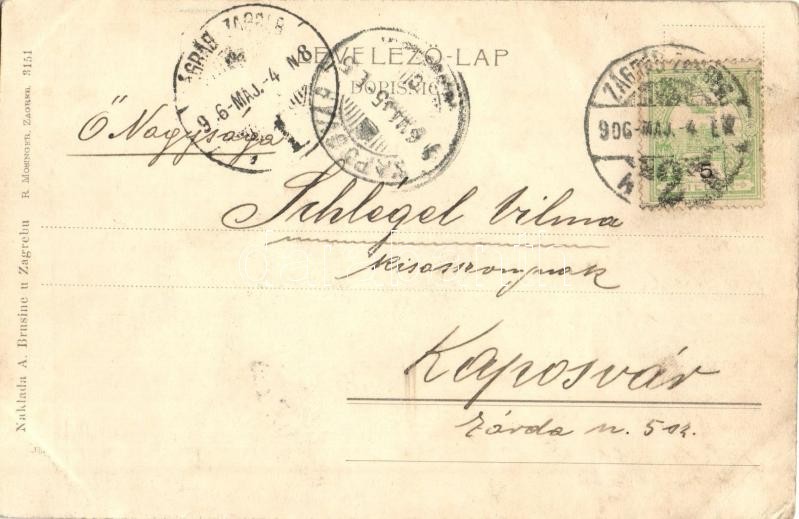 LEVELEZŐ-LAP
DOPISNICA
ZÁGRÁB ZAGREB
906-MÁJ.-4 N8
KAPOSVÁR
ZÁGRÁB ZAGREB
906-MÁJ.-4
5
Ő Nagysága
Schlégel Vilma
kisasszonynak
Kaposvár
Zárda u. 5 sz.
Naklada A. Brusine u Zagrebu R. Mosinger, Zagreb. 3151